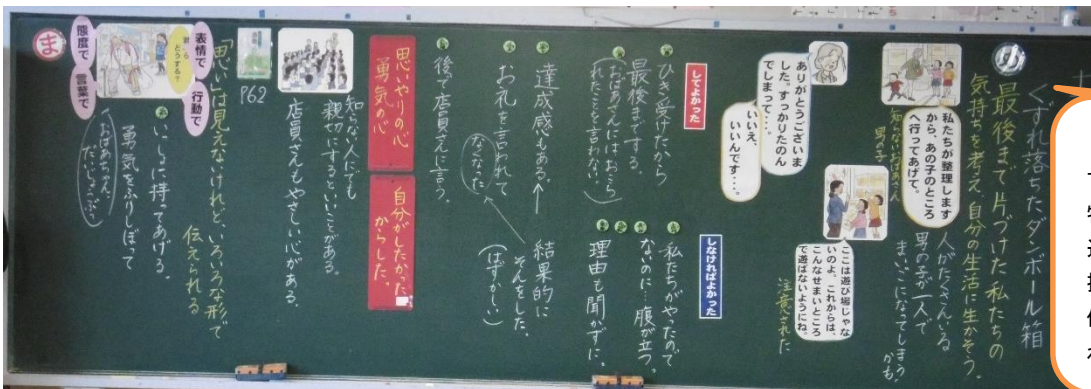 め
くずれ落ちたダンボール箱
最後まで片づけた私たちの
気持ちを考え、自分の生活に生かそう。
私たちが整理します
から、あの子のところ
へ行ってあげて。
知らないおばあさん
男の子
人がたくさんいる
男の子が一人で
まいごになってしまう
かも
ここは遊び場じゃな
いのよ。これからは、
こんなせまいところ
で遊ばないようにね。
注意された
ありがとうございま
した。すっかりたのん
でしまって・・・。
いいえ、
いいんです・・・。
してよかった
ひき受けたから
最後までする。
(おばあさんにはおこら
れたことを言わない。)
達成感もある。
お礼を言われて、
なくなった
後で店員さんに言う。
しなければよかった
私たちがやったので
ないのに…腹が立つ。
理由も聞かずに。
結果的に
そんをした。
(はずかしい)
思いやりの心
勇気の心
自分がしたかった
からした。
知らない人にでも
親切にするといいことがある。
店員さんもやさしい心がある。
P62
「思い」は見えないけれど、いろいろな形で
伝えられる
表情で
行動で
態度で
言葉で
どうする?
いっしょに持ってあげる。
勇気をふりしぼって
おばあちゃん、
だいじょうぶ?
ま